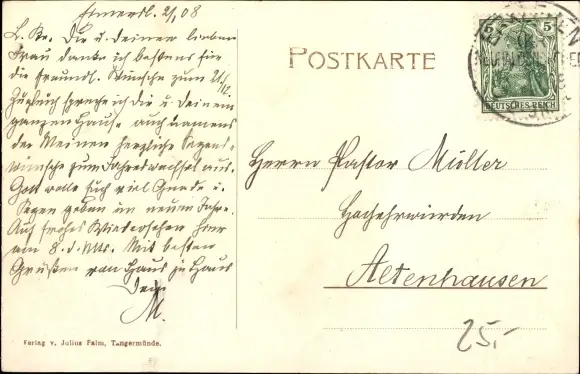 2/1 08
L. Br. Dir u. deiner lieben
Frau danke ich bestens für
die freundl. Wünsche zum 21/12.
Zugleich spreche ich dir u. deinem
ganzen Hause auch namens
der Meinen herzliche Segens-
wünsche zum Jahreswechsel aus.
Gott wolle Euch viel Gnade u.
Segen geben im neuen Jahre.
Auf frohes Wiedersehen hier
am 8. d. Mts. Mit besten
Grüßen von Haus zu Haus
Dein
M.
POSTKARTE
5
5
DEUTSCHES REICH
Herrn Pastor Müller
Hochehrwürden
Altenhausen
25.-
Verlag v. Julius Palm, Tangermünde.